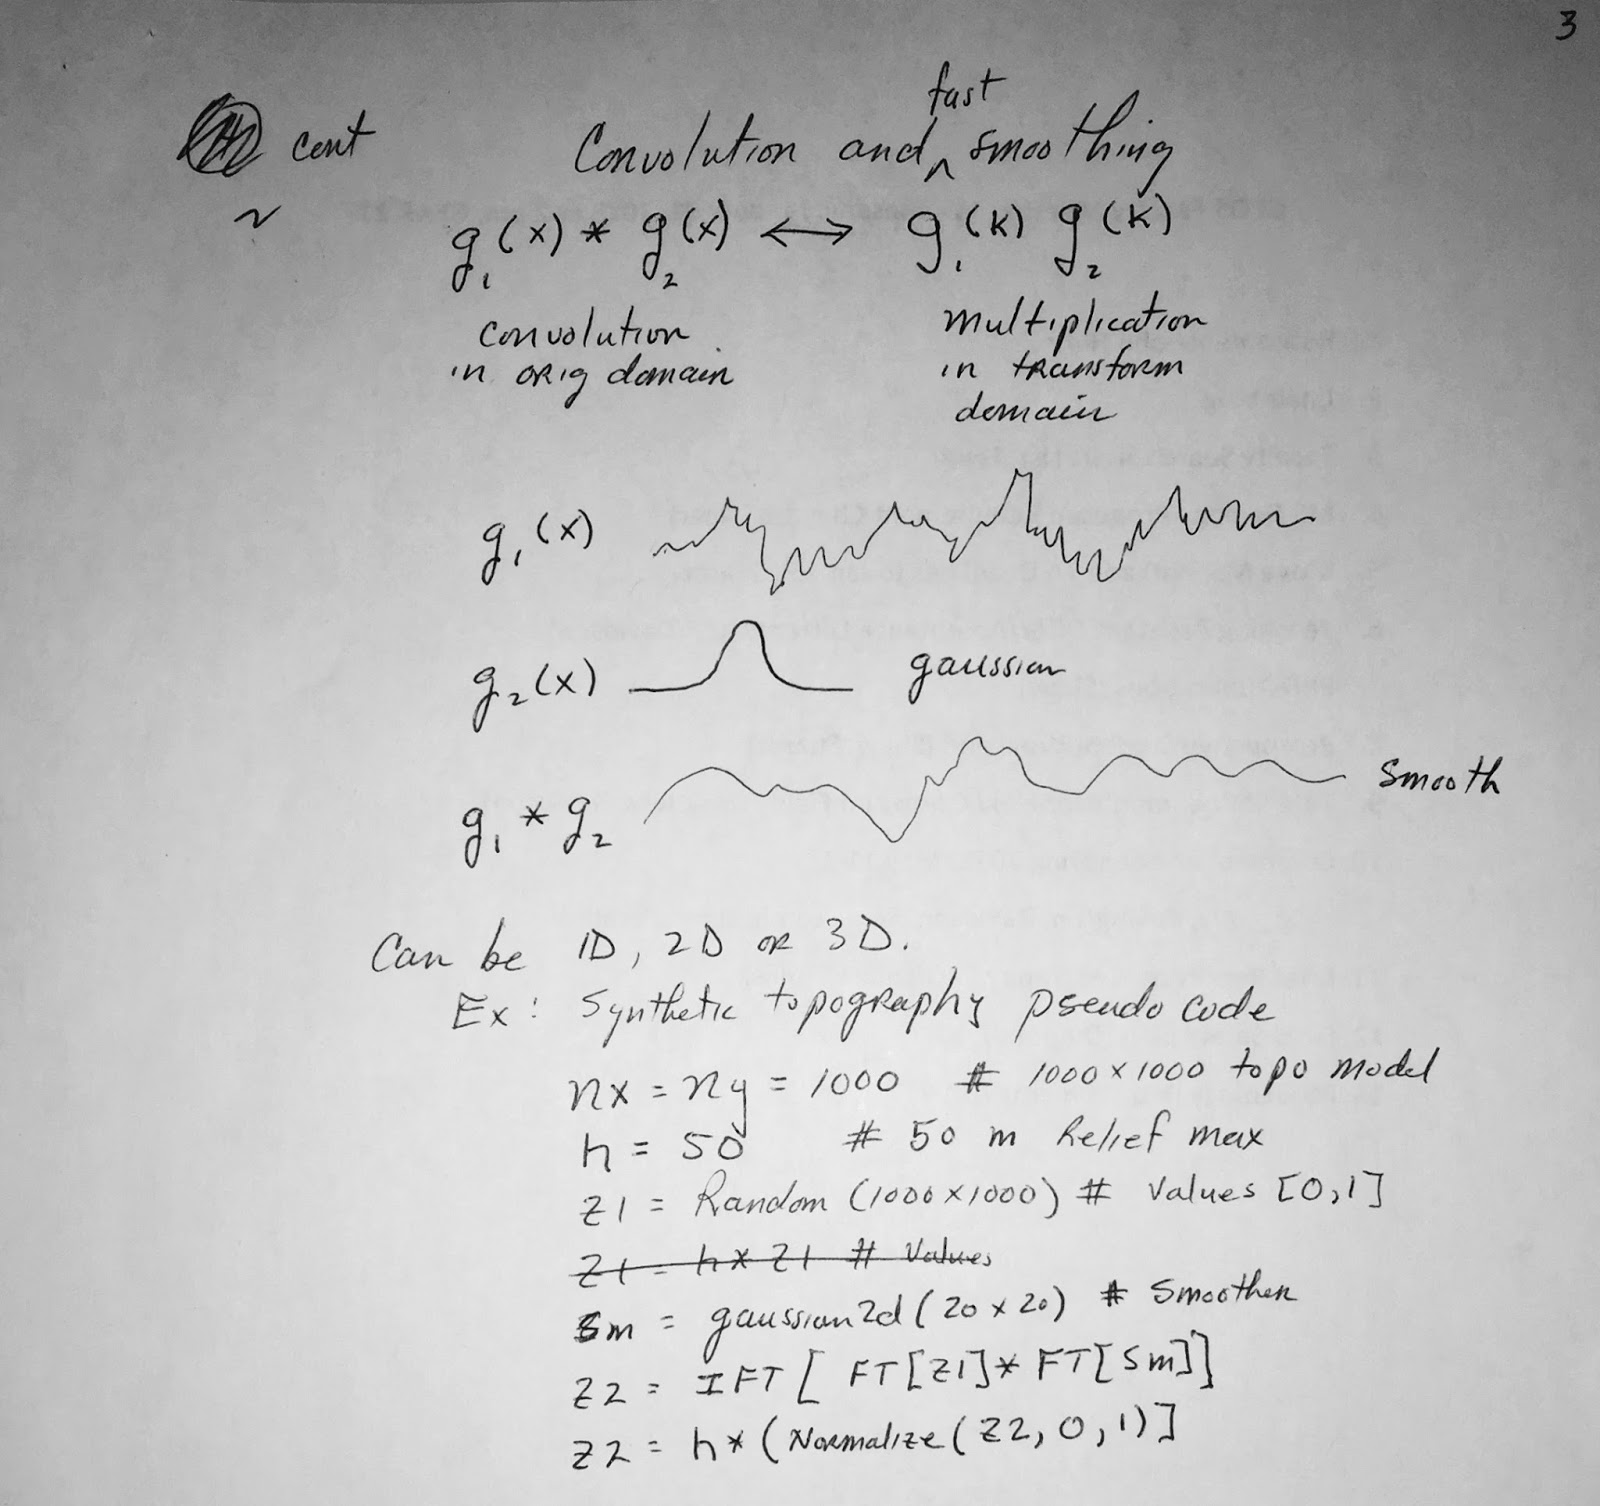 3
cont Convolution and ^ fast smoothing
~
g₁(x) * g₂(x) ⟷ g₁(k) g₂(k)
convolution
in orig domain
multiplication
in transform
domain
g₁(x)
g₂(x) gaussian
g₁ * g₂ smooth
Can be 1D, 2D or 3D.
Ex: Synthetic topography pseudo code
nx = ny = 1000 # 1000 x 1000 topo model
h = 50 # 50 m relief max
z1 = Random (1000 x 1000) # values [0,1]
z1 = h * z1 # values
sm = gaussian2d (20 x 20) # smoother
z2 = IFT [ FT[z1] * FT[sm]]
z2 = h * (Normalize (z2, 0, 1)]